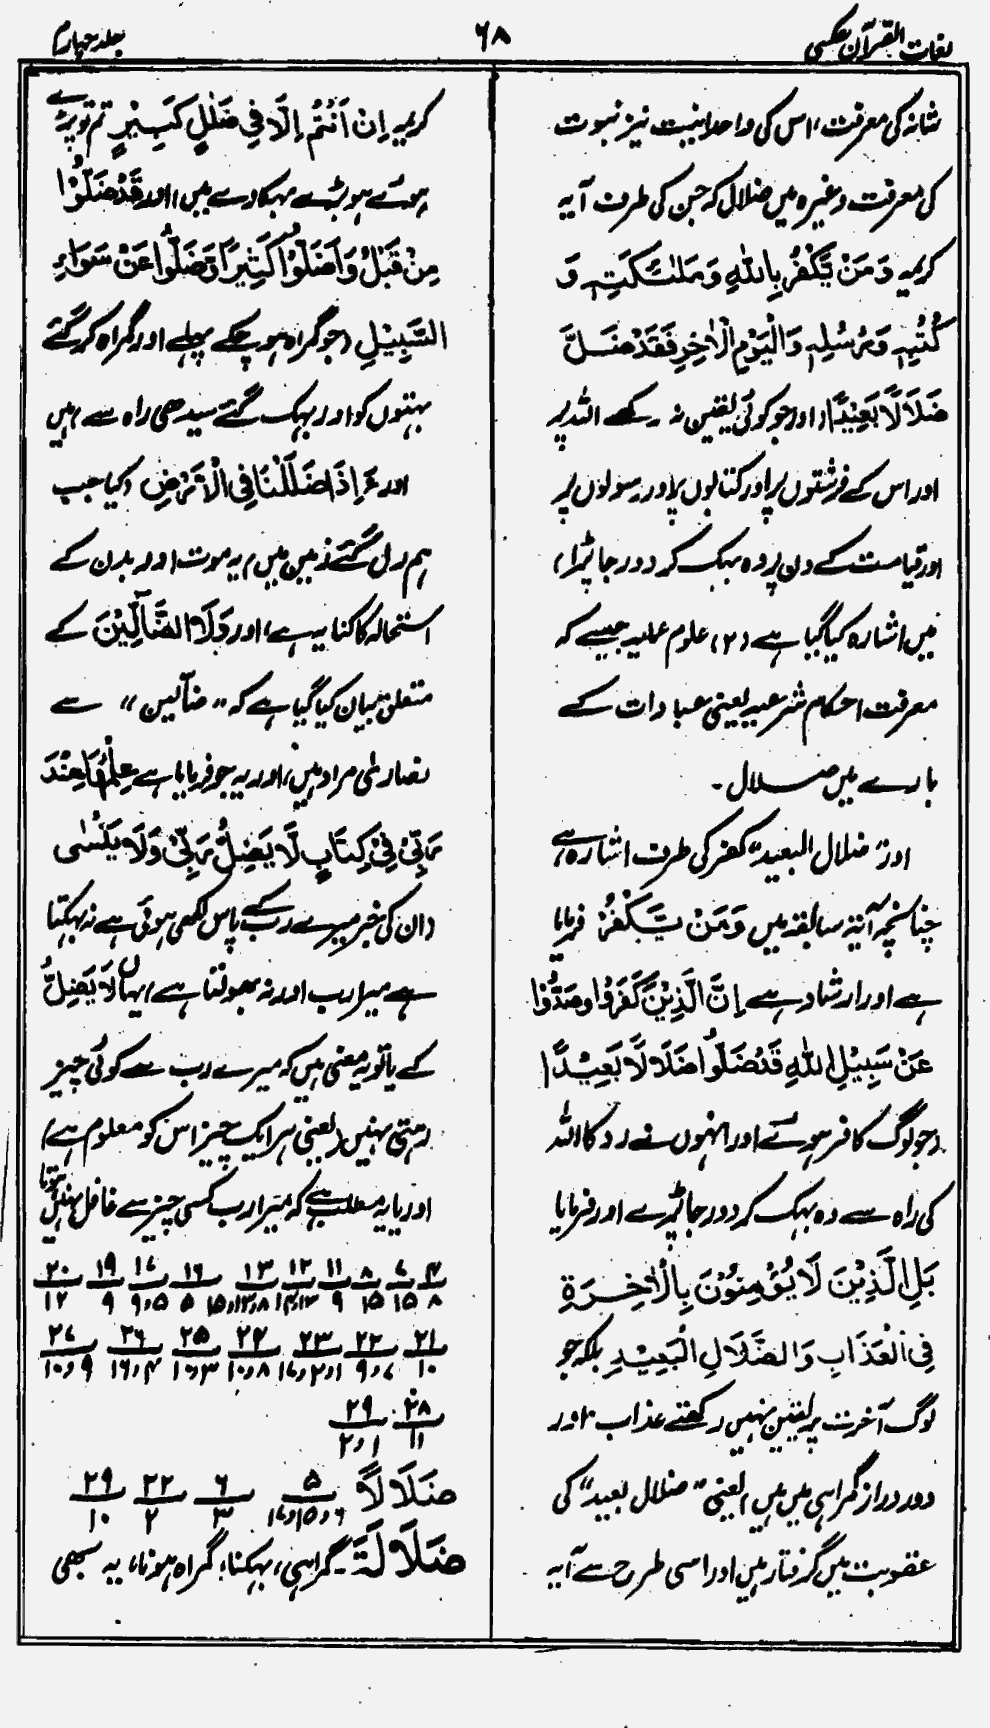 لغات القرآن عکسی
۶۸
جلد چہارم
شانہ کی معرفت، اس کی واحدانیت نیز نبوت
کی معرفت وغیرہ میں ضلال کہ جن کی طرف آیہ
کریمہ وَمَنْ يَّكْفُرْ بِاللّٰهِ وَمَلٰٓئِكَتِهٖ وَ
كُتُبِهٖ وَرُسُلِهٖ وَالْيَوْمِ الْاٰخِرِ فَقَدْ ضَلَّ
ضَلَالًا بَعِيْدًا (اور جو کوئی یقین نہ رکھے اللہ پر
اور اس کے فرشتوں پر اور کتابوں پر اور رسولوں پر
اور قیامت کے دن پر وہ بہک کر دور جا پڑا)
میں اشارہ کیا گیا ہے (۲) علوم عملیہ جیسے کہ
معرفت احکام شرعیہ یعنی عبادات کے
بارے میں ضلال ۔
اور "ضلال البعید" کفر کی طرف اشارہ ہے،
چنانچہ آیۃ سابقہ میں وَمَنْ يَّكْفُرْ فرمایا
ہے اور ارشاد ہے اِنَّ الَّذِيْنَ كَفَرُوْا وَصَدُّوْا
عَنْ سَبِيْلِ اللّٰهِ قَدْ ضَلُّوْا ضَلَالًا بَعِيْدًا
(جو لوگ کافر ہوئے اور انہوں نے روکا اللہ
کی راہ سے وہ بہک کر دور جا پڑے اور فرمایا
بَلِ الَّذِيْنَ لَا يُؤْمِنُوْنَ بِالْاٰخِرَةِ
فِى الْعَذَابِ وَالضَّلَالِ الْبَعِيْدِ بلکہ جو
لوگ آخرت پر یقین نہیں رکھتے عذاب اور
دور دراز گمراہی میں ہیں) یعنی "ضلال بعید" کی
عقوبت میں گرفتار ہیں اور اسی طرح سے آیہ
کریمہ اِنْ اَنْتُمْ اِلَّا فِىْ ضَلٰلٍ كَبِيْرٍ تم تو پڑے
ہوئے ہو بڑے بہکاوے میں) اور قَدْ ضَلُّوْا
مِنْ قَبْلُ وَاَضَلُّوْا كَثِيْرًا وَّضَلُّوْا عَنْ سَوَآءِ
السَّبِيْلِ (جو گمراہ ہو چکے پہلے اور گمراہ کر گئے
بہتوں کو اور بہک گئے سیدھی راہ سے) ہیں
اور ءَاِذَا ضَلَلْنَا فِى الْاَرْضِ (کیا جب
ہم رل گئے زمین میں) یہ موت اور بدن کے
استحالہ کا کنایہ ہے، اور وَلَا الضَّآلِّيْنَ کے
متعلق بیان کیا گیا ہے کہ "ضآلین" سے
نصاریٰ مراد ہیں، اور یہ جو فرمایا ہے عِلْمُهَا عِنْدَ
رَبِّىْ فِىْ كِتَابٍ لَا يَضِلُّ رَبِّىْ وَلَا يَنْسٰى
(ان کی خبر میرے رب کے پاس لکھی ہوئی ہے نہ بہکتا
ہے میرا رب اور نہ بھولتا ہے) یہاں لَا يَضِلُّ
کے یا تو یہ معنی ہیں کہ میرے رب سے کوئی چیز
رہتی نہیں (یعنی ہر ایک چیز اس کو معلوم ہے)
اور یا یہ مطلب ہے کہ میرا رب کسی چیز سے غافل نہیں ہوتا
۴/۸ ۷/۱۵ ۸/۱۵ ۱۱/۹ ۱۲/۱۳،۱۴ ۱۳/۸،۱۲،۱۵ ۱۶/۵ ۱۷/۵،۹ ۱۹/۹ ۲۰/۱۲
۲۱/۱۰ ۲۲/۷،۹ ۲۳/۱،۲،۱۷ ۲۴/۸،۱۰ ۲۵/۳،۱۰ ۲۶/۴،۱۶ ۲۷/۹،۱۰
۲۸/۱۱ ۲۹/۱،۲
ضَلَالًا ۵/۶،۱۵،۱۷ ۶/۳ ۲۲/۲ ۲۹/۱۰
ضَلَالَةَ ۔ گمراہی، بہکنا، گمراہ ہونا، یہ سبھی